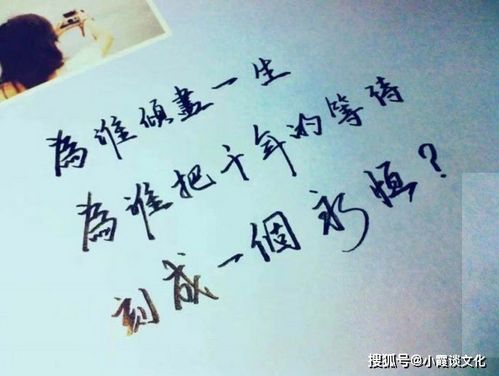 為誰傾盡一生
為誰把千年的等待
刻成一個永恆?
搜狐号@小霞谈文化